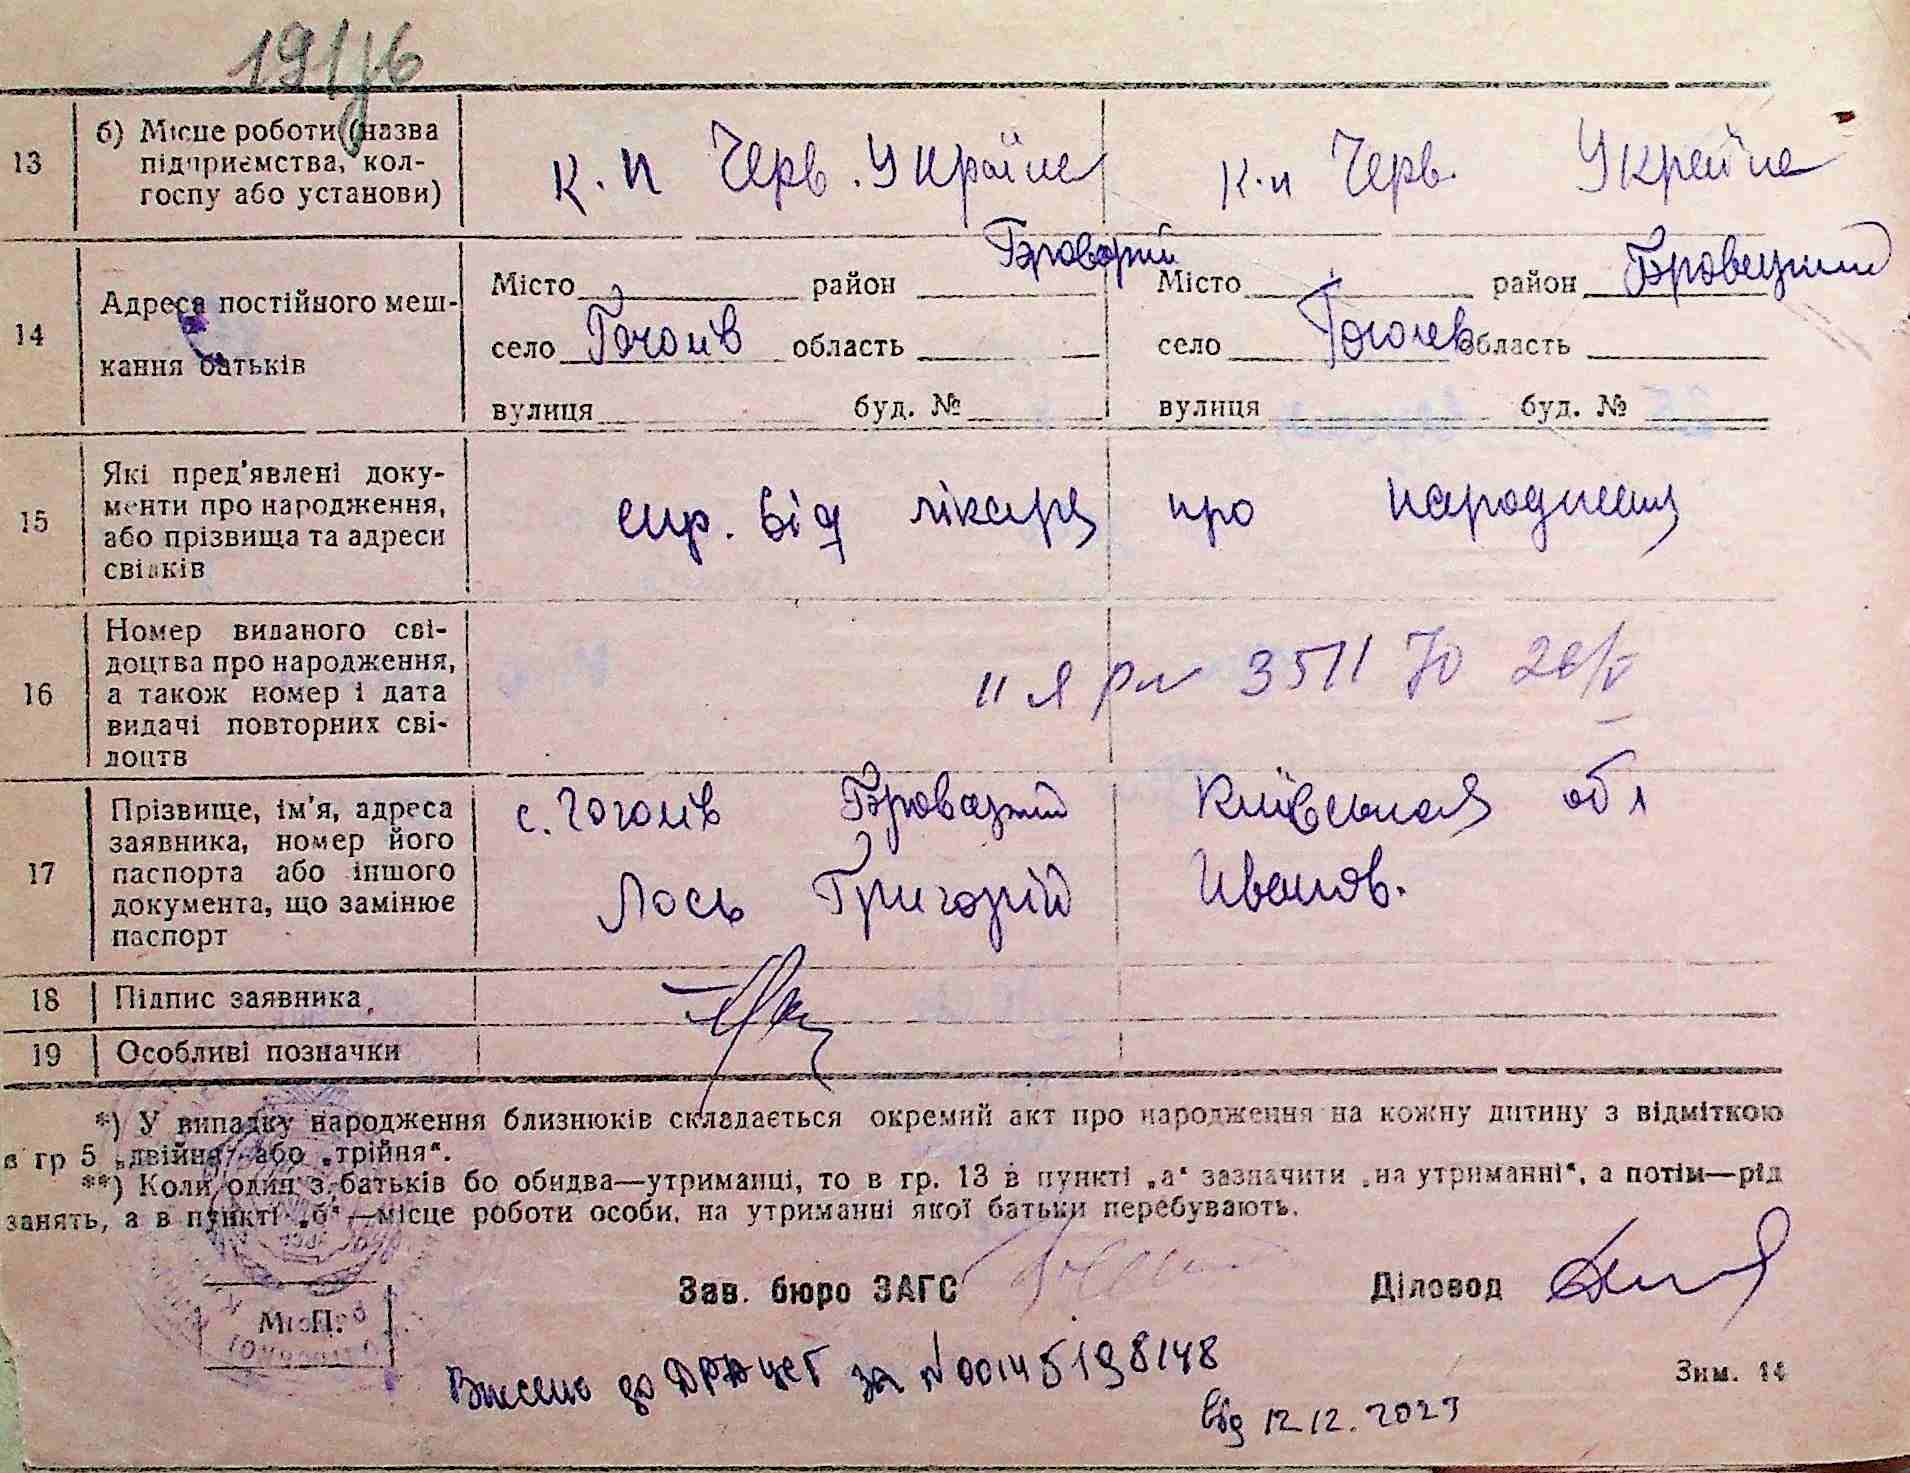 13 б) Місце роботи (назва підприємства, колгоспу або установи) к.п Черв. Україна к.п Черв. Україна
14 Адреса постійного мешкання батьків
Місто район Броварий Місто район Бровецкий
село Гоголів область село Гоголев область
вулиця буд. № вулиця буд. №
15 Які пред'явлені документи про народження, або прізвища та адреси свідків спр. від лікаря про народження
16 Номер виданого свідоцтва про народження, а також номер і дата видачі повторних свідоцтв 351170
17 Прізвище, ім'я, адреса заявника, номер його паспорта або іншого документа, що замінює паспорт
с. Гоголів Бровецкий Київськая обл
Лось Григорій Иванов.
18 Підпис заявника
19 Особливі позначки
*) У випадку народження близнюків складається окремий акт про народження на кожну дитину з відміткою
в гр 5 „двійня“ або „трійня“.
**) Коли один з батьків бо обидва—утриманці, то в гр. 13 в пункті „а“ зазначити „на утриманні“, а потім—рід
занять, а в пункті „б“—місце роботи особи, на утриманні якої батьки перебувають.
Зав. бюро ЗАГС Діловод
М. П.
Внесено до ДРАЦСГ за №00145198148
Зим. 14
від 12.12.2023